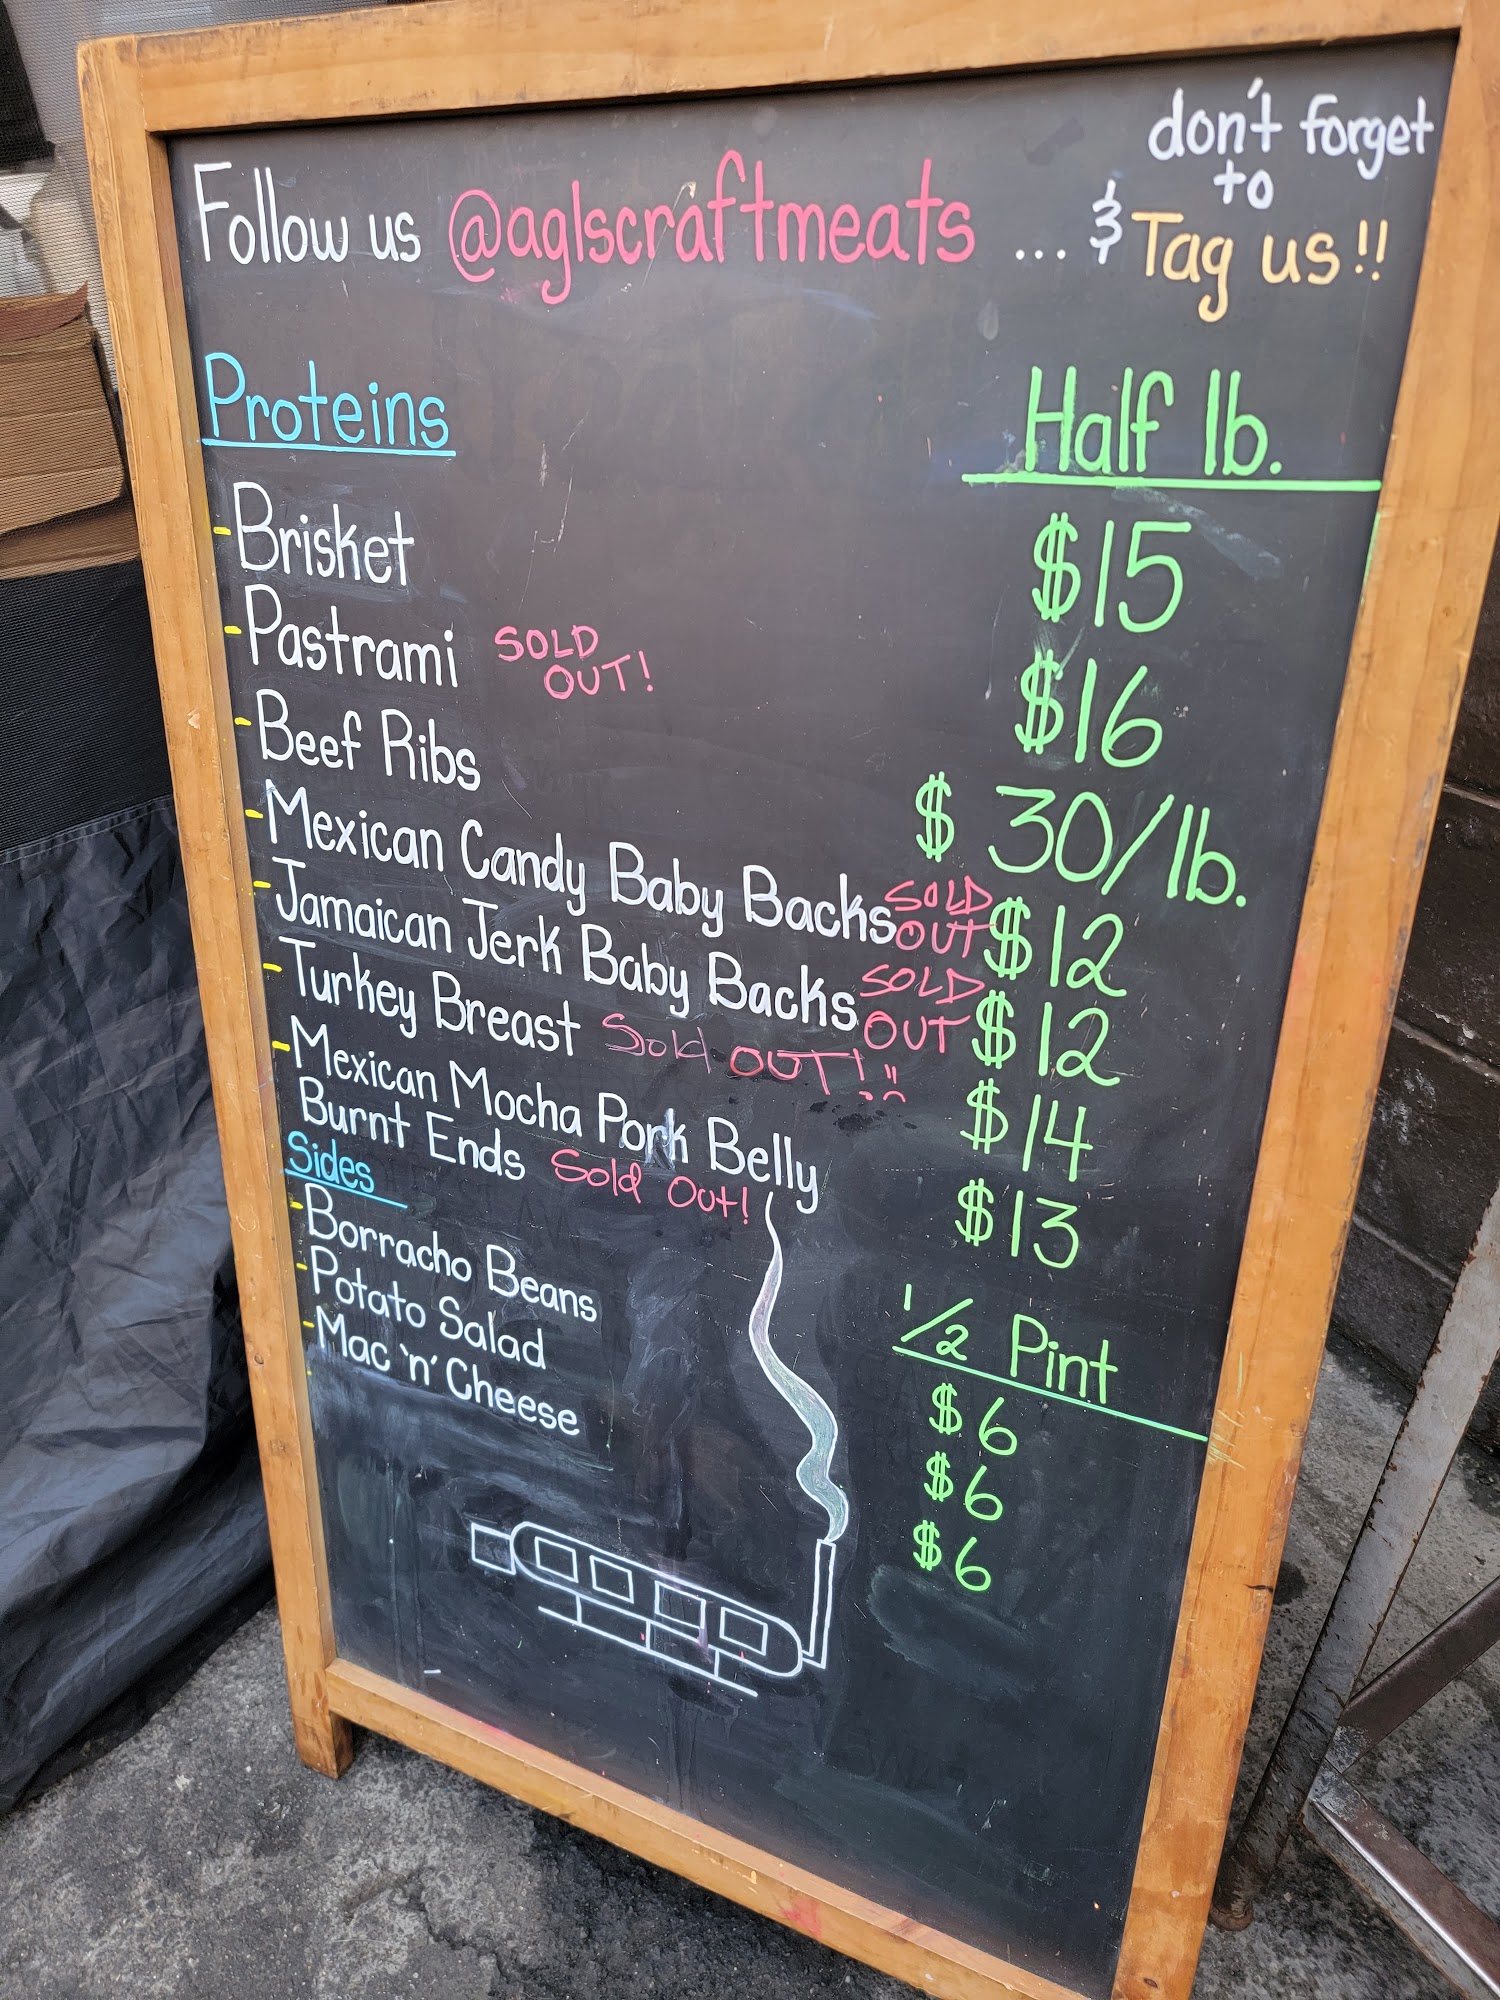 don't forget
to
Follow us @aglscraftmeats ... & Tag us!!
Proteins Half lb.
-Brisket $15
-Pastrami SOLD OUT! $16
-Beef Ribs $30/lb.
-Mexican Candy Baby Backs SOLD OUT $12
-Jamaican Jerk Baby Backs SOLD OUT $12
-Turkey Breast Sold OUT!!! $14
-Mexican Mocha Pork Belly
Burnt Ends Sold Out! $13
Sides 1/2 Pint
-Borracho Beans $6
-Potato Salad $6
-Mac 'n' Cheese $6